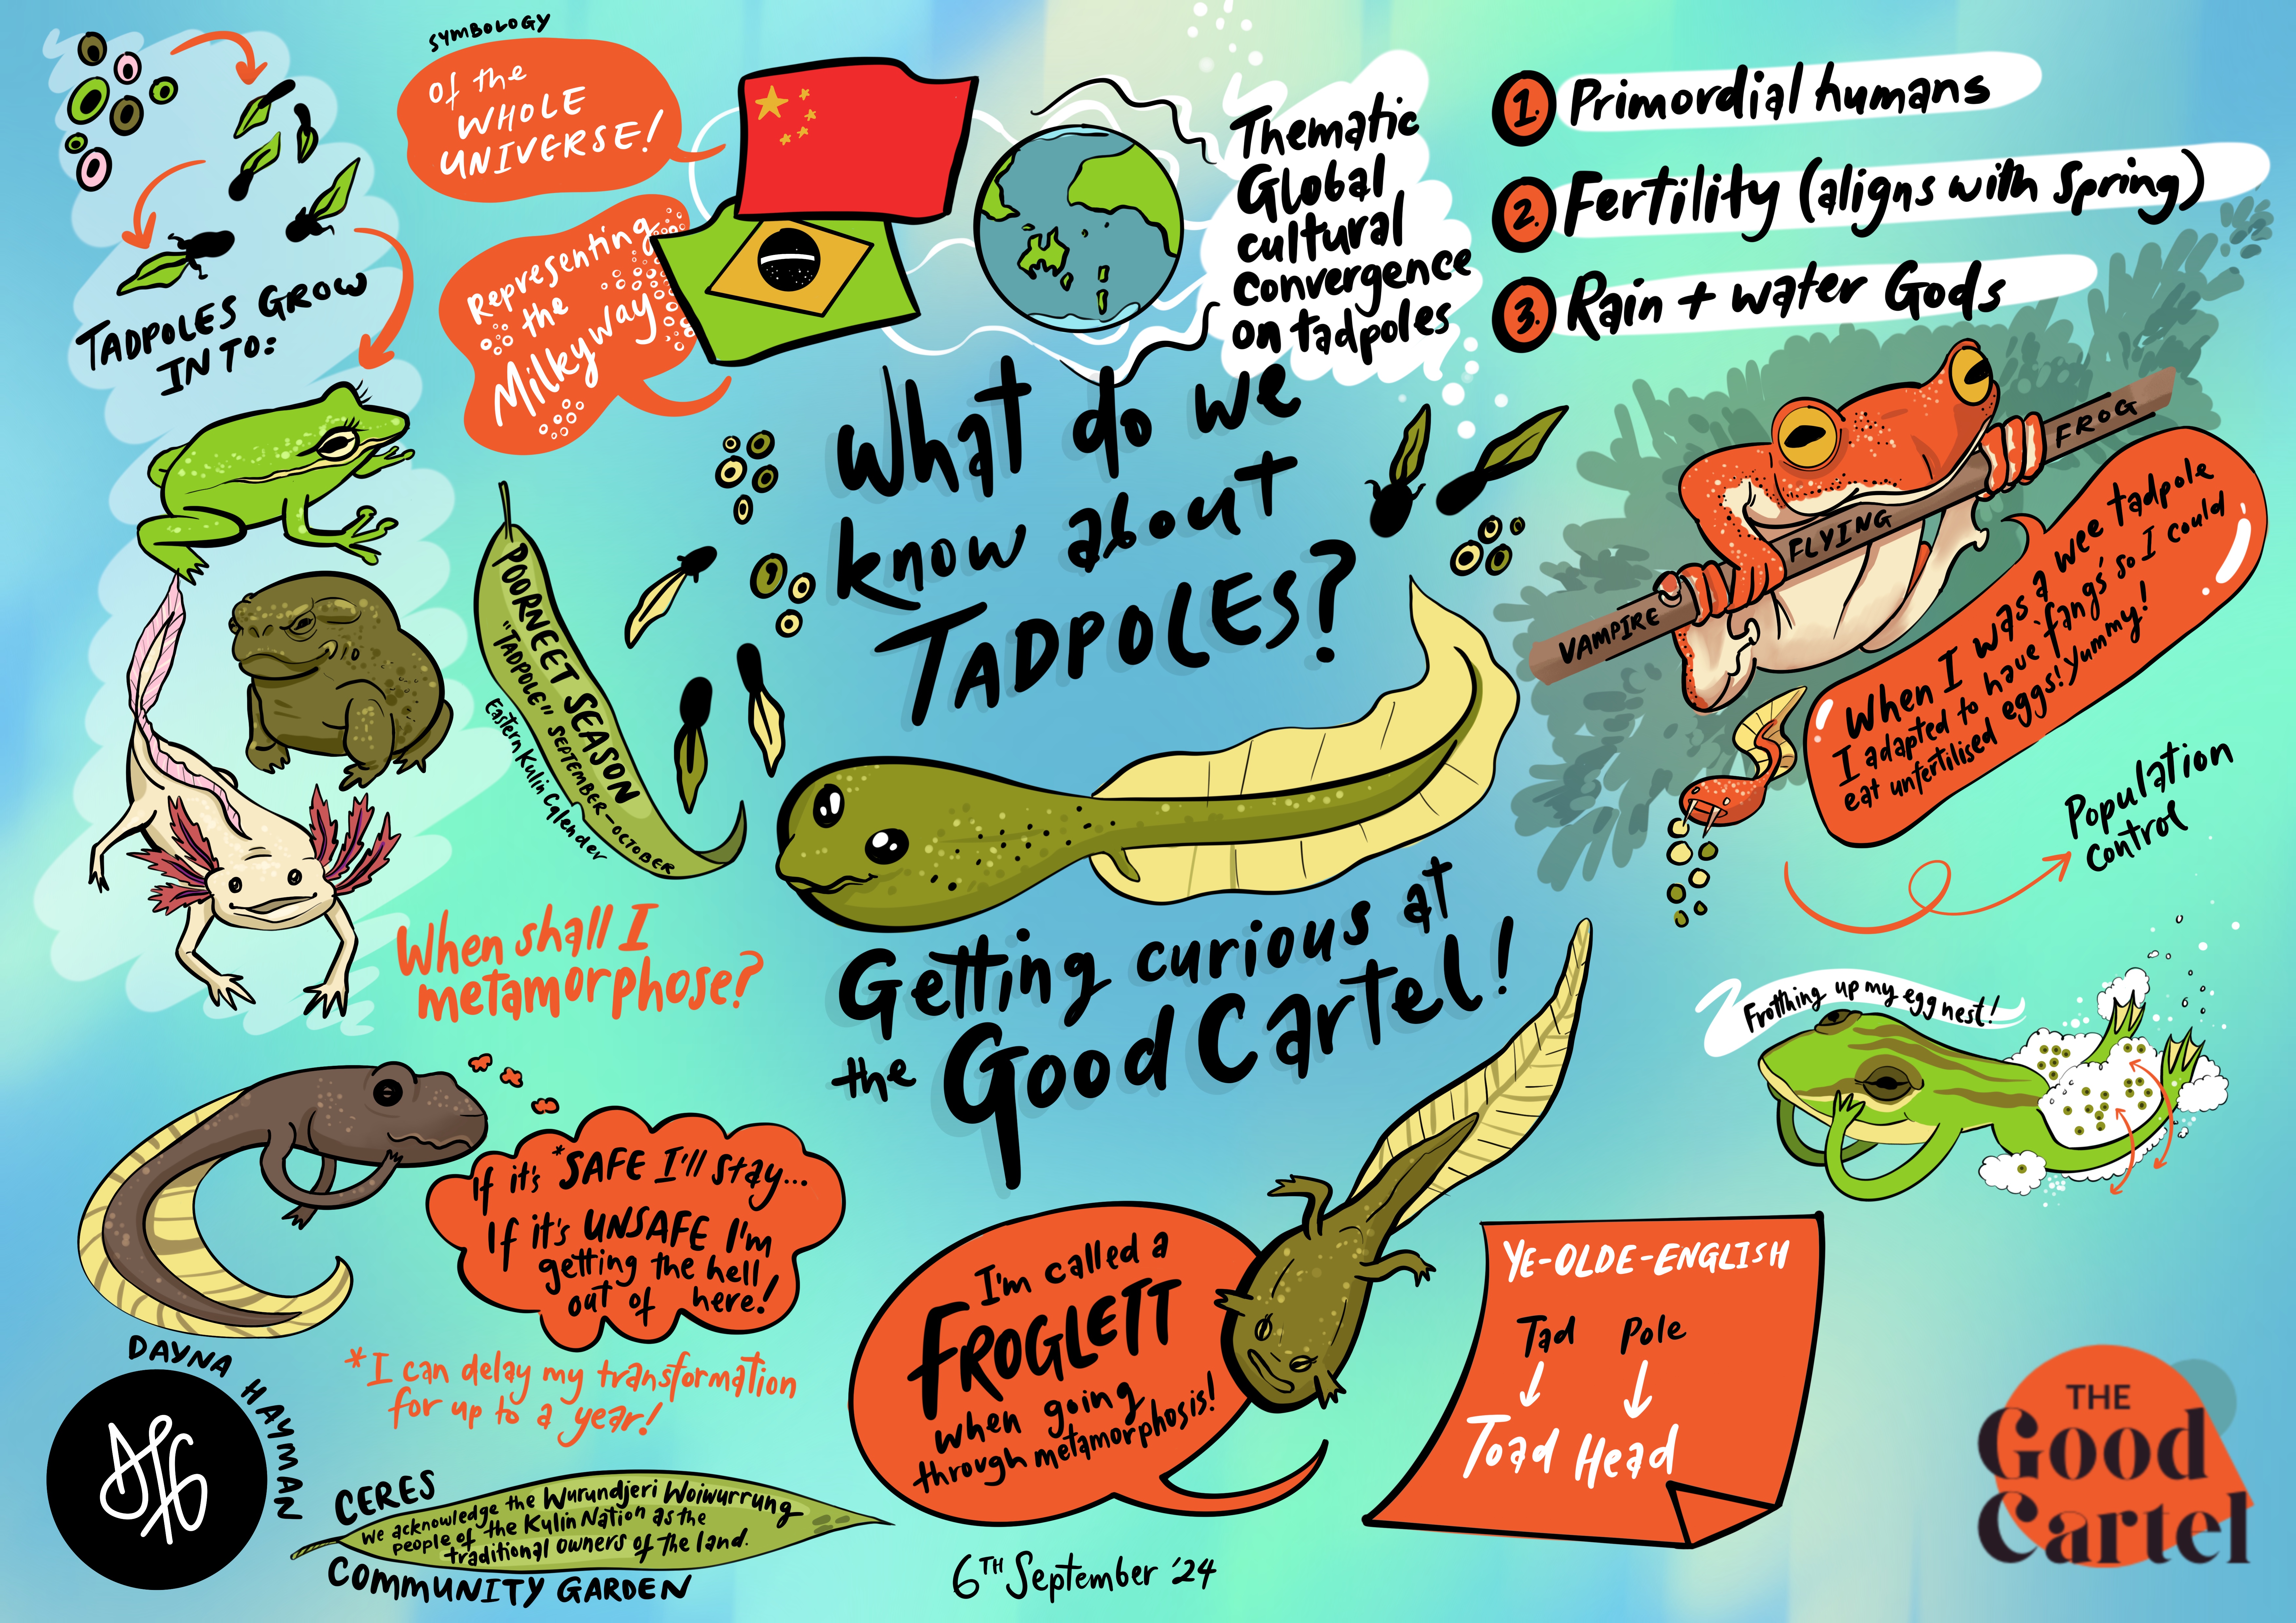 SYMBOLOGY
Of the
WHOLE
UNIVERSE!
Representing
the
Milkyway
TADPOLES GROW
INTO:
Thematic
Global
cultural
convergence
on tadpoles
1. Primordial humans
2. Fertility (aligns with Spring)
3. Rain + water Gods
What do we
know about
TADPOLES?
POORNEET SEASON
"TADPOLE" SEPTEMBER - OCTOBER
Eastern Kulin Calender
VAMPIRE FLYING FROG
When I was a wee tadpole
I adapted to have 'fangs' so I could
eat unfertilised eggs! Yummy!
Population
control
When shall I
metamorphose?
Getting curious at
the Good Cartel!
Frotthing up my egg nest!
If it's *SAFE I'll stay...
If it's UNSAFE I'm
getting the hell
out of here!
*I can delay my transformation
for up to a year!
I'm called a
FROGLETT
when going
through metamorphosis!
YE-OLDE-ENGLISH
Tad Pole
Toad Head
DAYNA HAYMAN
CERES
We acknowledge the Wurundjeri Woiwurrung
people of the Kulin Nation as the
traditional owners of the land.
COMMUNITY GARDEN
6TH September '24
THE
Good
Cartel